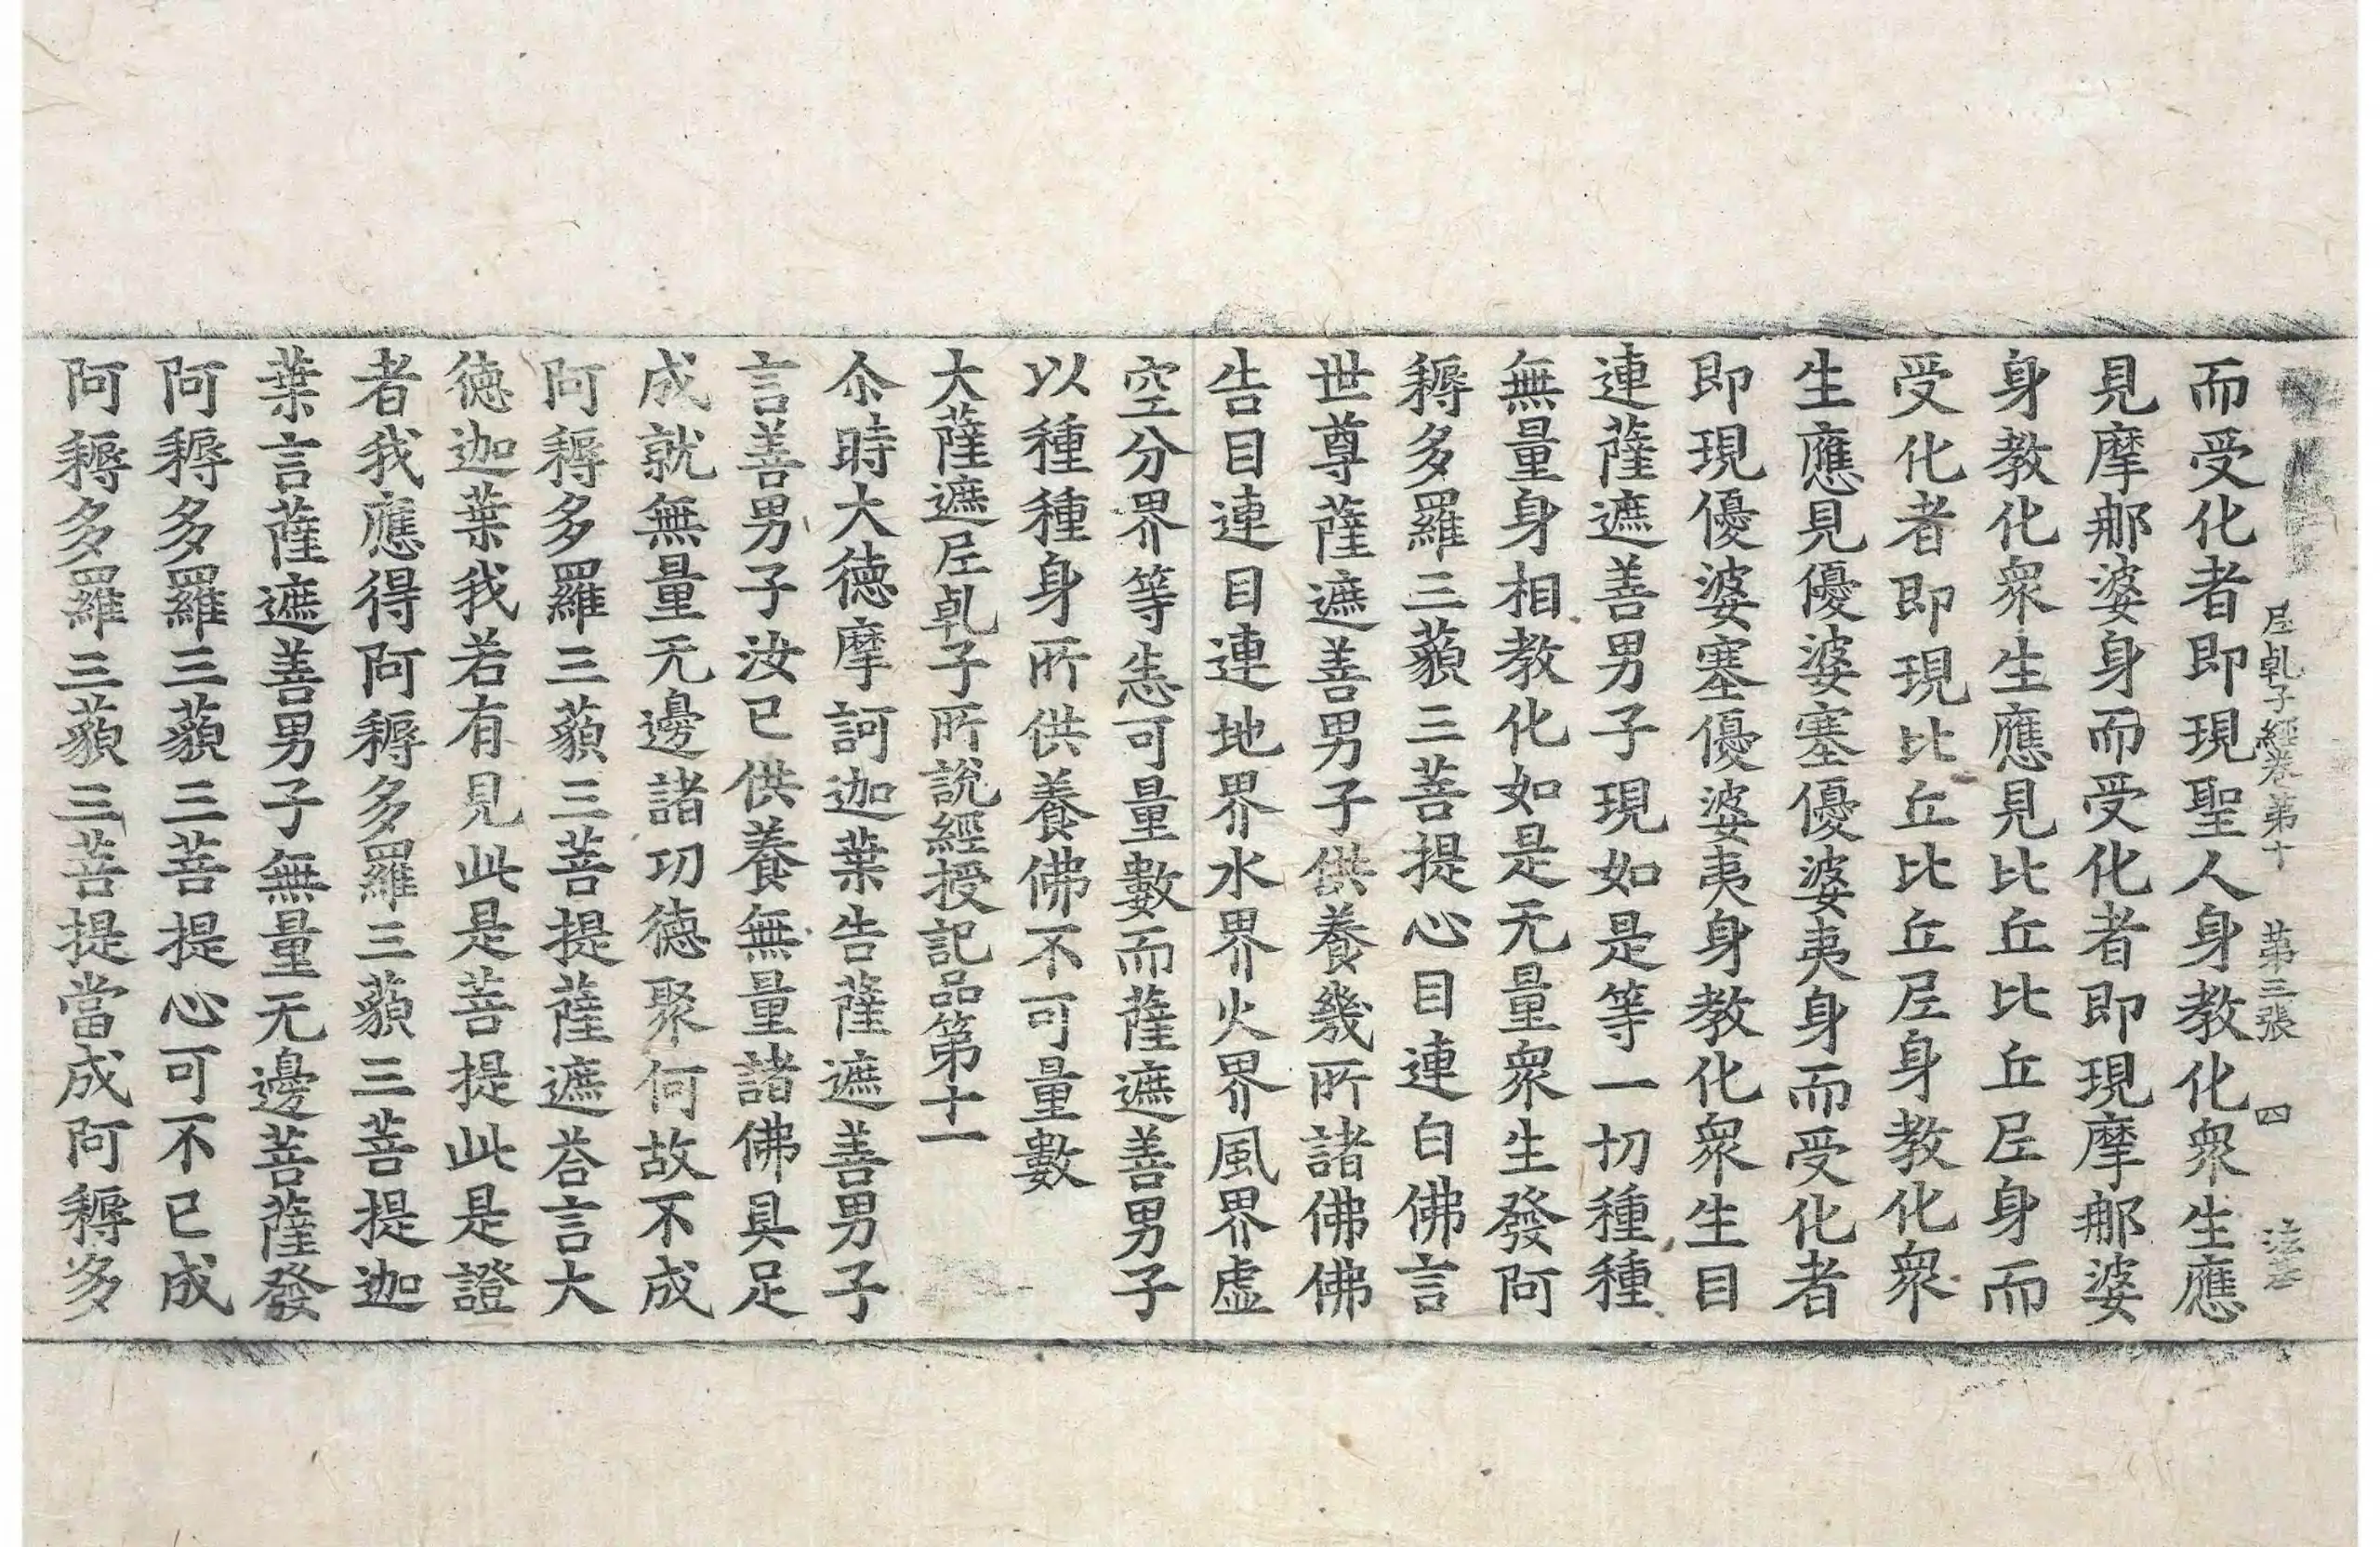 𡰱乹子經卷第十　第三張　四
而受化者即現聖人身教化衆生應
見摩那婆身而受化者即現摩那婆
身教化衆生應見比丘比丘𡰱身而
受化者即現比丘比丘𡰱身教化衆
生應見優婆塞優婆夷身而受化者
即現優婆塞優婆夷身教化衆生目
連薩遮善男子現如是等一切種種
無量身相教化如是无量衆生發阿
耨多羅三藐三菩提心目連白佛言
世尊薩遮善男子供養幾所諸佛佛
告目連目連地界水界火界風界虛
空分界等悉可量數而薩遮善男子
以種種身所供養佛不可量數
大薩遮𡰱乹子所說經授記品第十一
尒時大德摩訶迦葉告薩遮善男子
言善男子汝已供養無量諸佛具足
成就無量无邊諸功德聚何故不成
阿耨多羅三藐三菩提薩遮荅言大
德迦葉我若有見此是菩提此是證
者我應得阿耨多羅三藐三菩提迦
葉言薩遮善男子無量无邊菩薩發
阿耨多羅三藐三菩提心可不已成
阿耨多羅三藐三菩提當成阿耨多